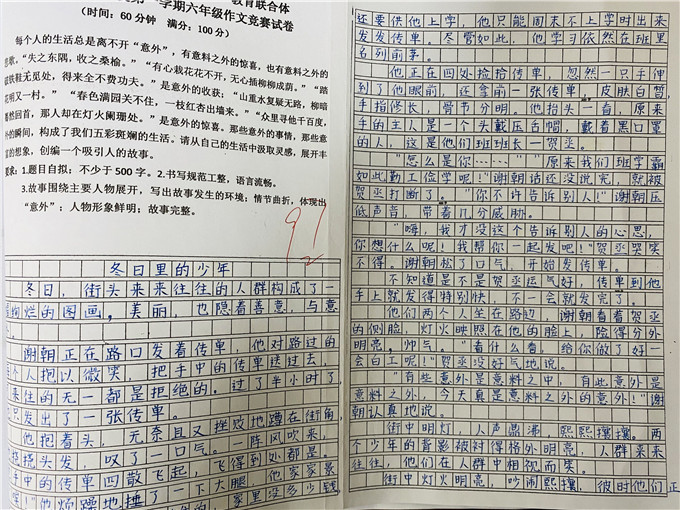 学期六年级作文竞赛试卷
教育联合体
(时间: 60 分钟 满分: 100 分)
每个人的生活总是离不开“意外”,有意料之外的惊喜,也有意料之外的
悲歌,“失之东隅,收之桑榆。”“有心栽花花不开,无心插柳柳成荫。”“踏
破铁鞋无觅处,得来全不费功夫。”是意外的收获;“山重水复疑无路,柳暗
花明又一村。”“春色满园关不住,一枝红杏出墙来。”“众里寻他千百度,
蓦然回首,那人却在灯火阑珊处。”是意外的惊喜。那些意外的事情,那些意
外的瞬间,构成了我们五彩斑斓的生活。请从自己的生活中汲取灵感,展开丰
富的想象,创编一个吸引人的故事。
要求:1.题目自拟;不少于 500 字。2.书写规范工整,语言流畅。
3.故事围绕主要人物展开,写出故事发生的环境;情节曲折,体现出
“意外”;人物形象鲜明;故事完整。
91
2
冬日里的少年
冬日,街头来来往往的人群构成了一
绚烂的图画。美丽,也隐着善意,与意
谢朝正在路口发着传单,他对路过的
个人抱以微笑,把手中的传单送过去,
来往的无一都是拒绝的。过了半小时了,
只发出了一张传单。
他抱着头,无奈且又挫败地蹲在街角,
挠挠头发,叹了一口气。一阵风吹来,
中的传单四散飞起,飞得到处都是。
他烦躁地捶了一下大腿,他家家景
家里没多少钱
还要供他上学,他只能周末不上学时出来
发发传单。尽管如此,他学习依然在班里
名列前茅。
他正在四处捡拾传单,忽然一只手伸
到了他眼前,还拿前一张传单,皮肤白皙,
手指修长,骨节分明。他抬头一看,原来
手的主人是一个头戴压舌帽,戴着黑口罩
的人,这是他们班班长—贺丞。
“怎么是你……”“原来我们班学霸
如此勤工俭学呢!”谢朝话还没说完,就被
贺丞打断了。“你不许告诉别人!”谢朝压
低声音,带着几分威胁。
“嗨,我才没这个告诉别人的心思,
你想什么呢!我帮你一起发吧!”贺丞哭笑
不得。谢朝松了口气,开始发传单。
不知道是不是贺丞运气好,传单到他
手上就发得特别快,不一会就发完了。
他们两个人坐在路边,谢朝看着贺丞
的侧脸,灯火映照在他的脸上,脸得分外
明亮,帅气。“看什么看,给你做了好一
会白工呢!”贺丞没好气地说。
“有些意外是意料之中,有此意外是
意料之外,今天真是意料之外的意外!”谢
朝认真地说。
街中明灯,人声鼎沸,熙熙攘攘。两
个少年的背影被衬得格外明亮,人群来来
往往,他们在人群中相视而笑。
街中灯火明亮,吵闹熙攘,彼时他们正